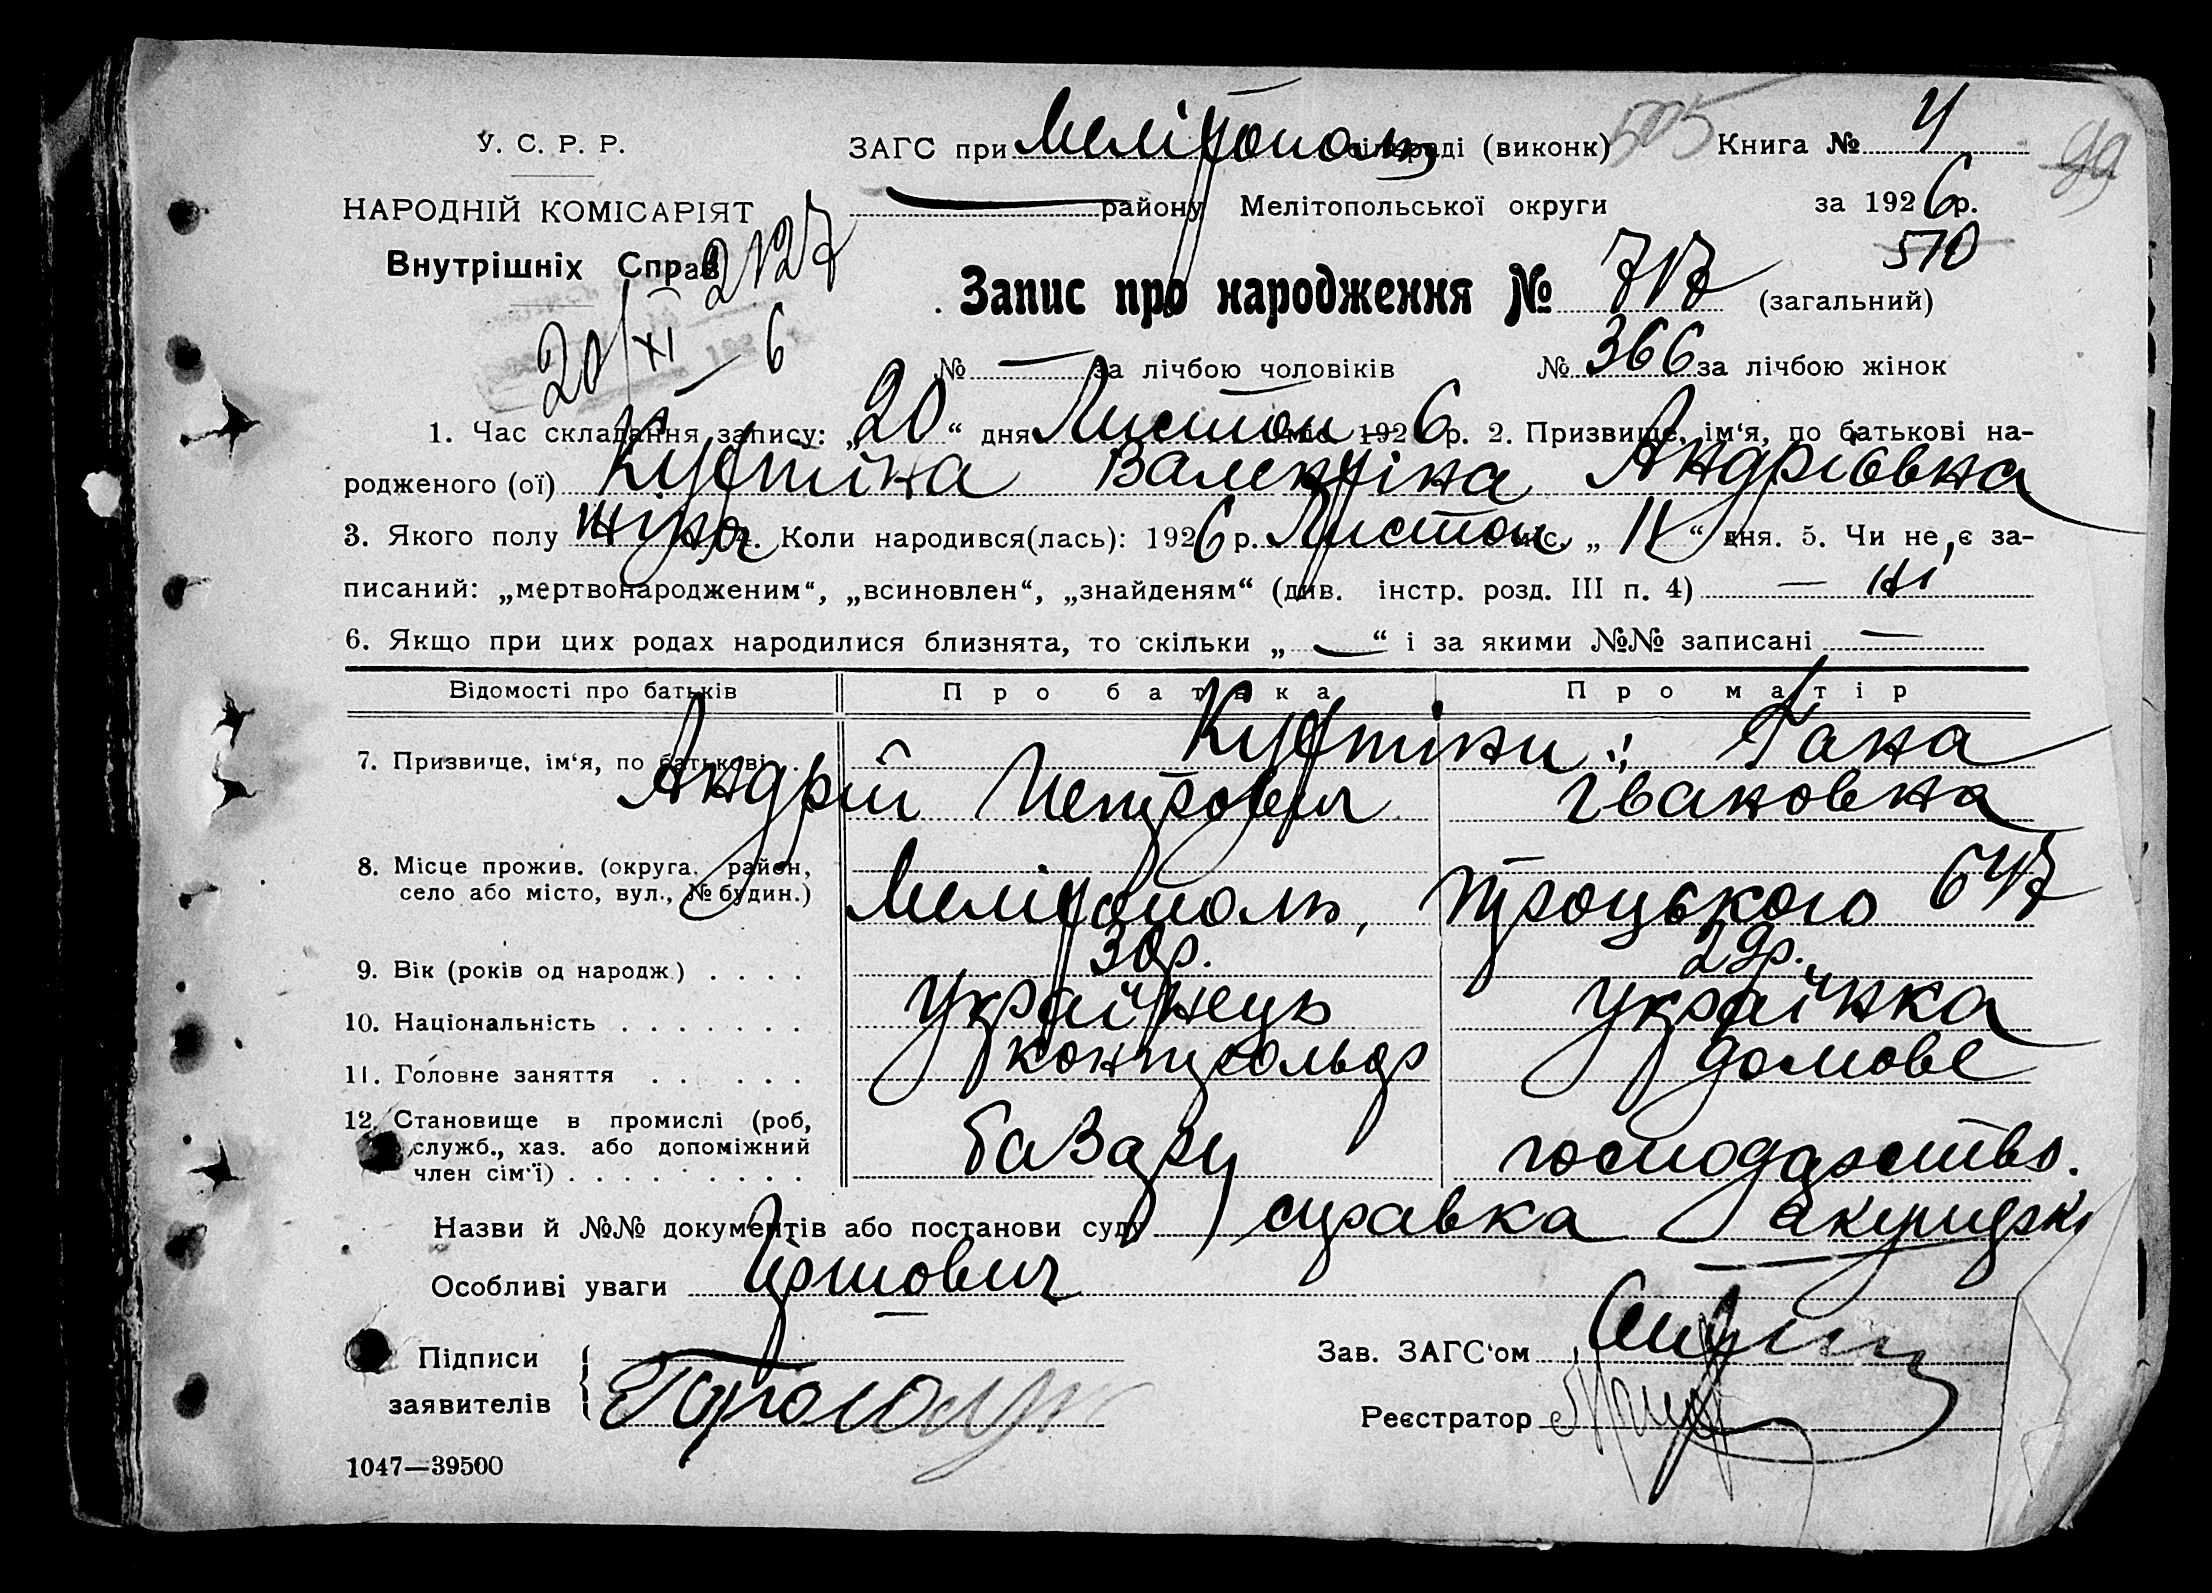 У. С. Р. Р. ЗАГС при Мелітополь сільраді (виконк) 505 Книга № 4
НАРОДНІЙ КОМІСАРІЯТ — району Мелітопольської округи за 1926 р.
Внутрішніх Справ 2127 570
Запис про народження № 717 (загальний)
20/XI – 6 № — за лічбою чоловіків № 366 за лічбою жінок
1. Час складання запису: „20“ дня Листоп міс. 1926 р. 2. Призвище, ім‘я, по батькові на-
родженого (ої) Куфтіна Валентіна Андрієвна
3. Якого полу жіноч 4. Коли народився(лась): 1926 р. Листоп. міс. „11“ дня. 5. Чи не є за-
писаний: „мертвонародженим“, „всиновлен“, „знайденям“ (див. інстр. розд. III п. 4) — ні
6. Якщо при цих родах народилися близнята, то скільки „—“ і за якими №№ записані —
Відомості про батьків Про батька Про матір
7. Призвище, ім‘я, по батькові . Куфтіни: Гана
Андрій Петрович Івановна
8. Місце прожив. (округа, район,
село або місто, вул., № будин.) Мелітополь, Троцького 647
9. Вік (років од народж.) . . . . 30 р. 29 р.
10. Національність . . . . . . . Українець Українка
11. Головне заняття . . . . . контрольор домове
12. Становище в промислі (роб,
служб., хаз. або допоміжний базару господарство.
член сім‘ї) . . . . . . . .
Назви й №№ документів або постанови суду справка акушерк
Особливі уваги
Підписи Зав. ЗАГС‘ом
заявителів Реєстратор
1047—39500